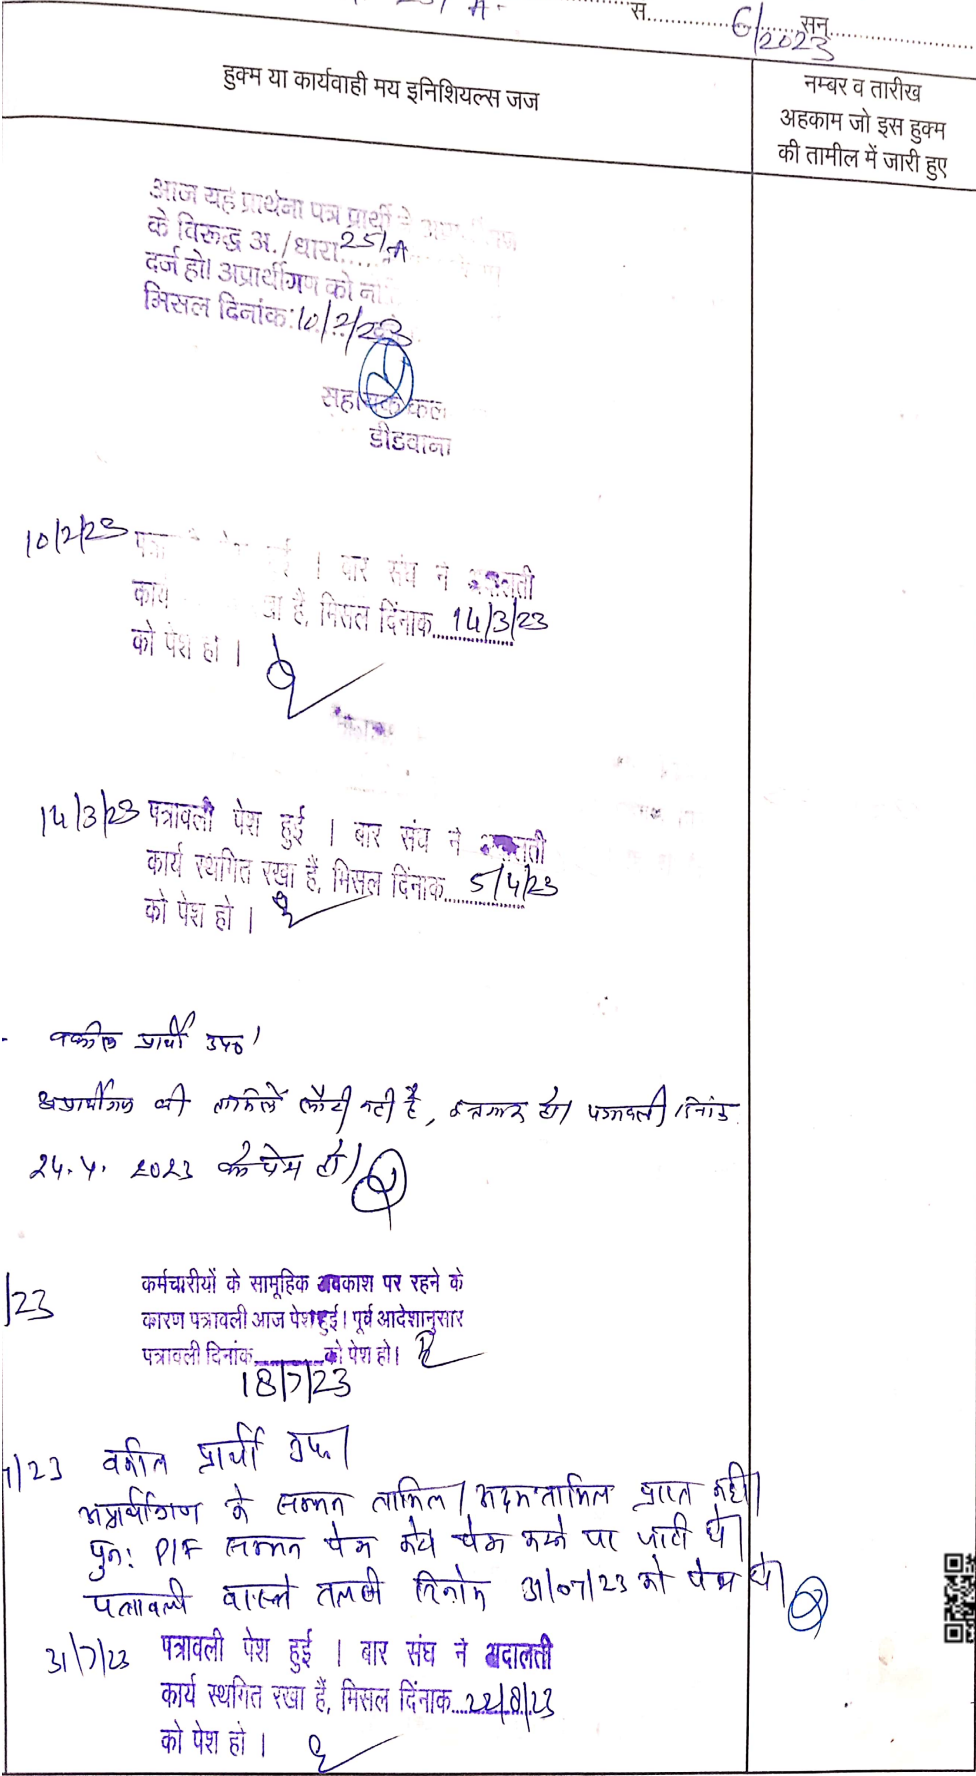 25/A. स............ 6/2023 सन्............
हुक्म या कार्यवाही मय इनिशियल्स जज
नम्बर व तारीख
अहकाम जो इस हुक्म
की तामील में जारी हुए
आज यह प्रार्थना पत्र प्रार्थी ने
के विरूद्ध अ./धारा 25/A
दर्ज हो। अप्रार्थीगण को
मिसल दिनांक: 10/2/23
सहायक कल
डीडवाना
10/2/23 । बार संघ ने अदालती
कार्य है, मिसल दिंनाक 14/3/23
को पेश हो ।
14/3/23 पत्रावली पेश हुई । बार संघ ने अदालती
कार्य स्थगित रखा हैं, मिसल दिंनाक 5/4/23
को पेश हो ।
वकील प्रार्थी उप०।
अप्रार्थीगण की तामिलें लौटी नही है, हो। पत्रावली
24.4.2023 को पेश हो।
/23 कर्मचारीयों के सामूहिक अवकाश पर रहने के
कारण पत्रावली आज पेश हुई। पूर्व आदेशानुसार
पत्रावली दिनांक को पेश हो।
18/7/23
/23 वकील प्रार्थी उप।
अप्रार्थीगण के सम्मन तामिल/अदमतामिल प्राप्त नही।
पुनः P/F सम्मन पेश करे पेश करने पर जारी हो।
पत्रावली वास्ते तलबी दिनांक 31/07/23 को पेश हो।
31/7/23 पत्रावली पेश हुई । बार संघ ने अदालती
कार्य स्थगित रखा हैं, मिसल दिंनाक 22/8/23
को पेश हो ।